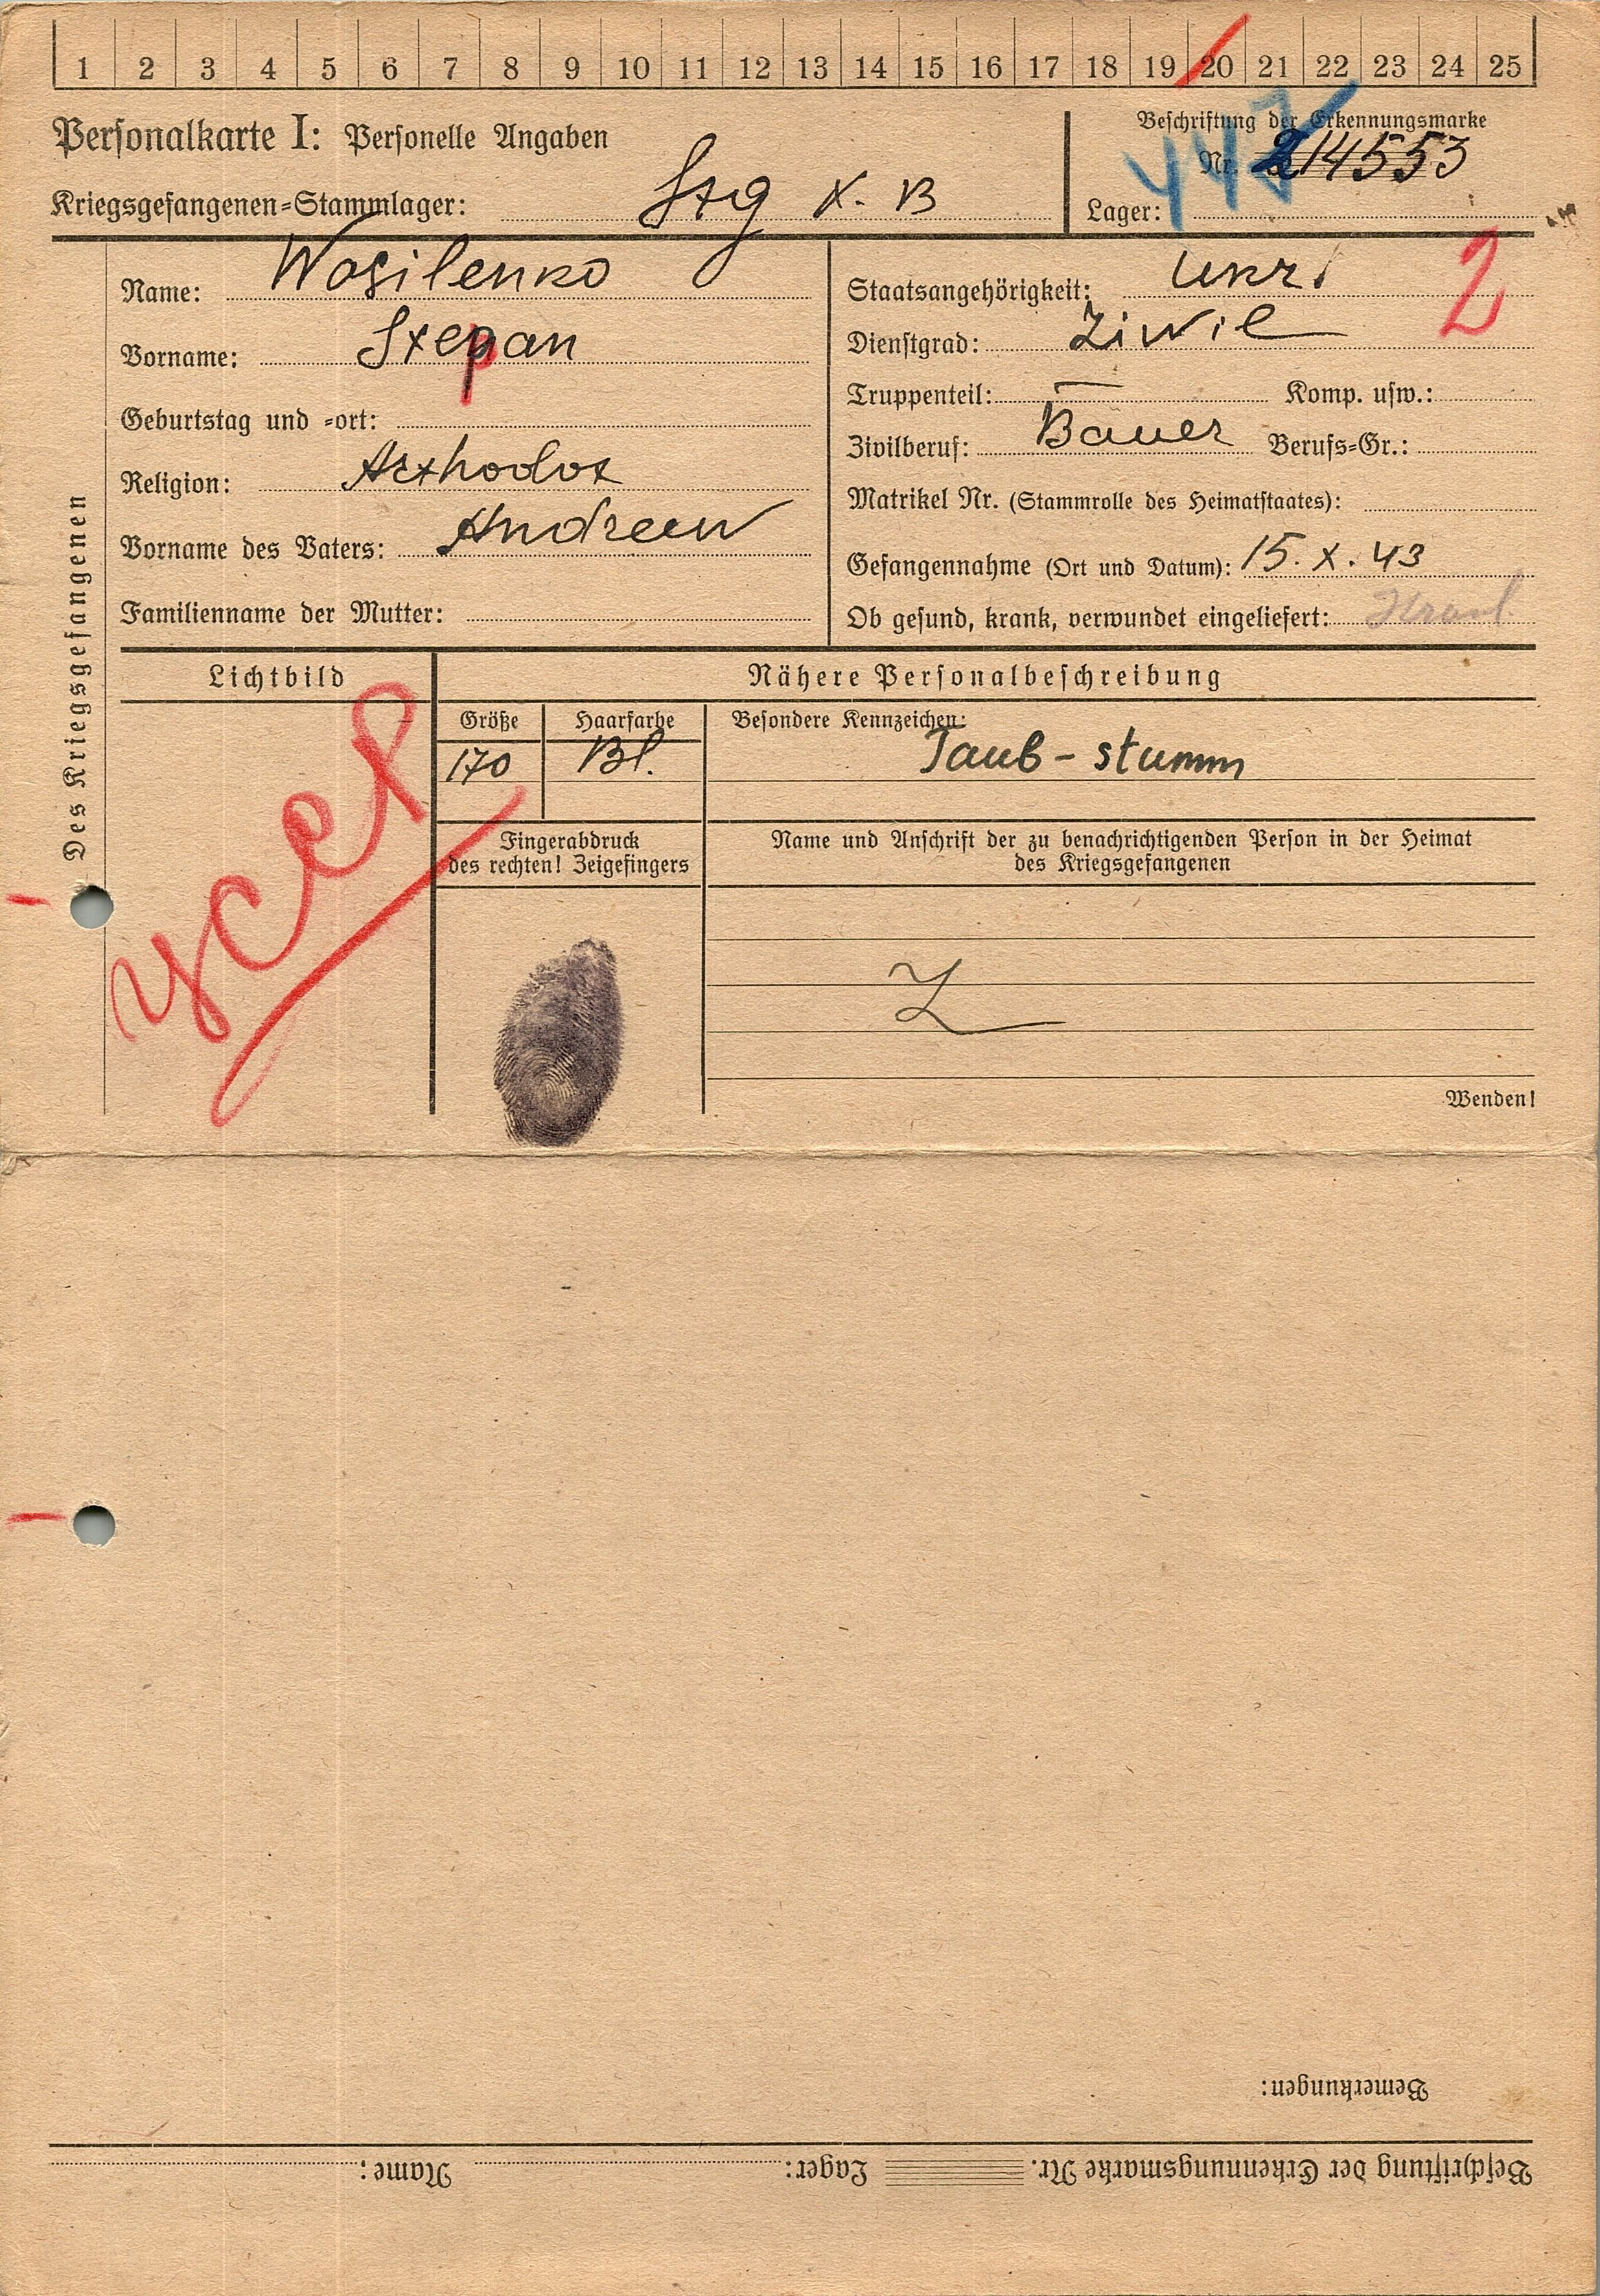 1 2 3 4 5 6 7 8 9 10 11 12 13 14 15 16 17 18 19 20 21 22 23 24 25
Personalkarte I: Personelle Angaben
Beschriftung der Erkennungsmarke
Nr. 214553
447
Kriegsgefangenen-Stammlager: Stg X. B
Lager:
Des Kriegsgefangenen
Name: Wasilenko
Vorname: Stepan
Geburtstag und -ort:
Religion: Arthodox
Vorname des Vaters: Andreew
Familienname der Mutter:
Staatsangehörigkeit: Ukr.
2
Dienstgrad: Ziwil
Truppenteil: — Komp. usw.:
Zivilberuf: Bauer Berufs-Gr.:
Matrikel Nr. (Stammrolle des Heimatstaates):
Gefangennahme (Ort und Datum): 15. X. 43
Ob gesund, krank, verwundet eingeliefert:
Lichtbild
усср
Nähere Personalbeschreibung
Größe Haarfarbe Besondere Kennzeichen:
170 Bl. Taub-stumm
Fingerabdruck
des rechten! Zeigefingers
Name und Anschrift der zu benachrichtigenden Person in der Heimat
des Kriegsgefangenen
Wenden!
Bemerkungen:
Beschriftung der Erkennungsmarke Nr. Lager: Name: